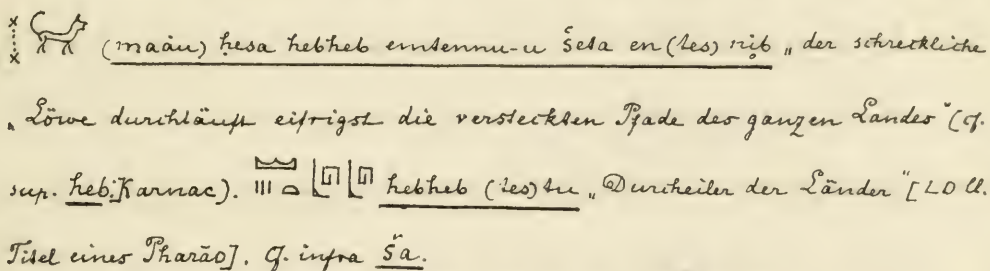 (maàu) ḥesa hebheb emtennu-u šeta en (tes) nib „der schreckliche
„Löwe durchläuft eifrigst die versteckten Pfade des ganzen Landes" (cf.
sup. heb: Karnac). hebheb (tes) tu „Durcheiler der Länder" [LD
Titel eines Pharão]. Cf. infra ša.